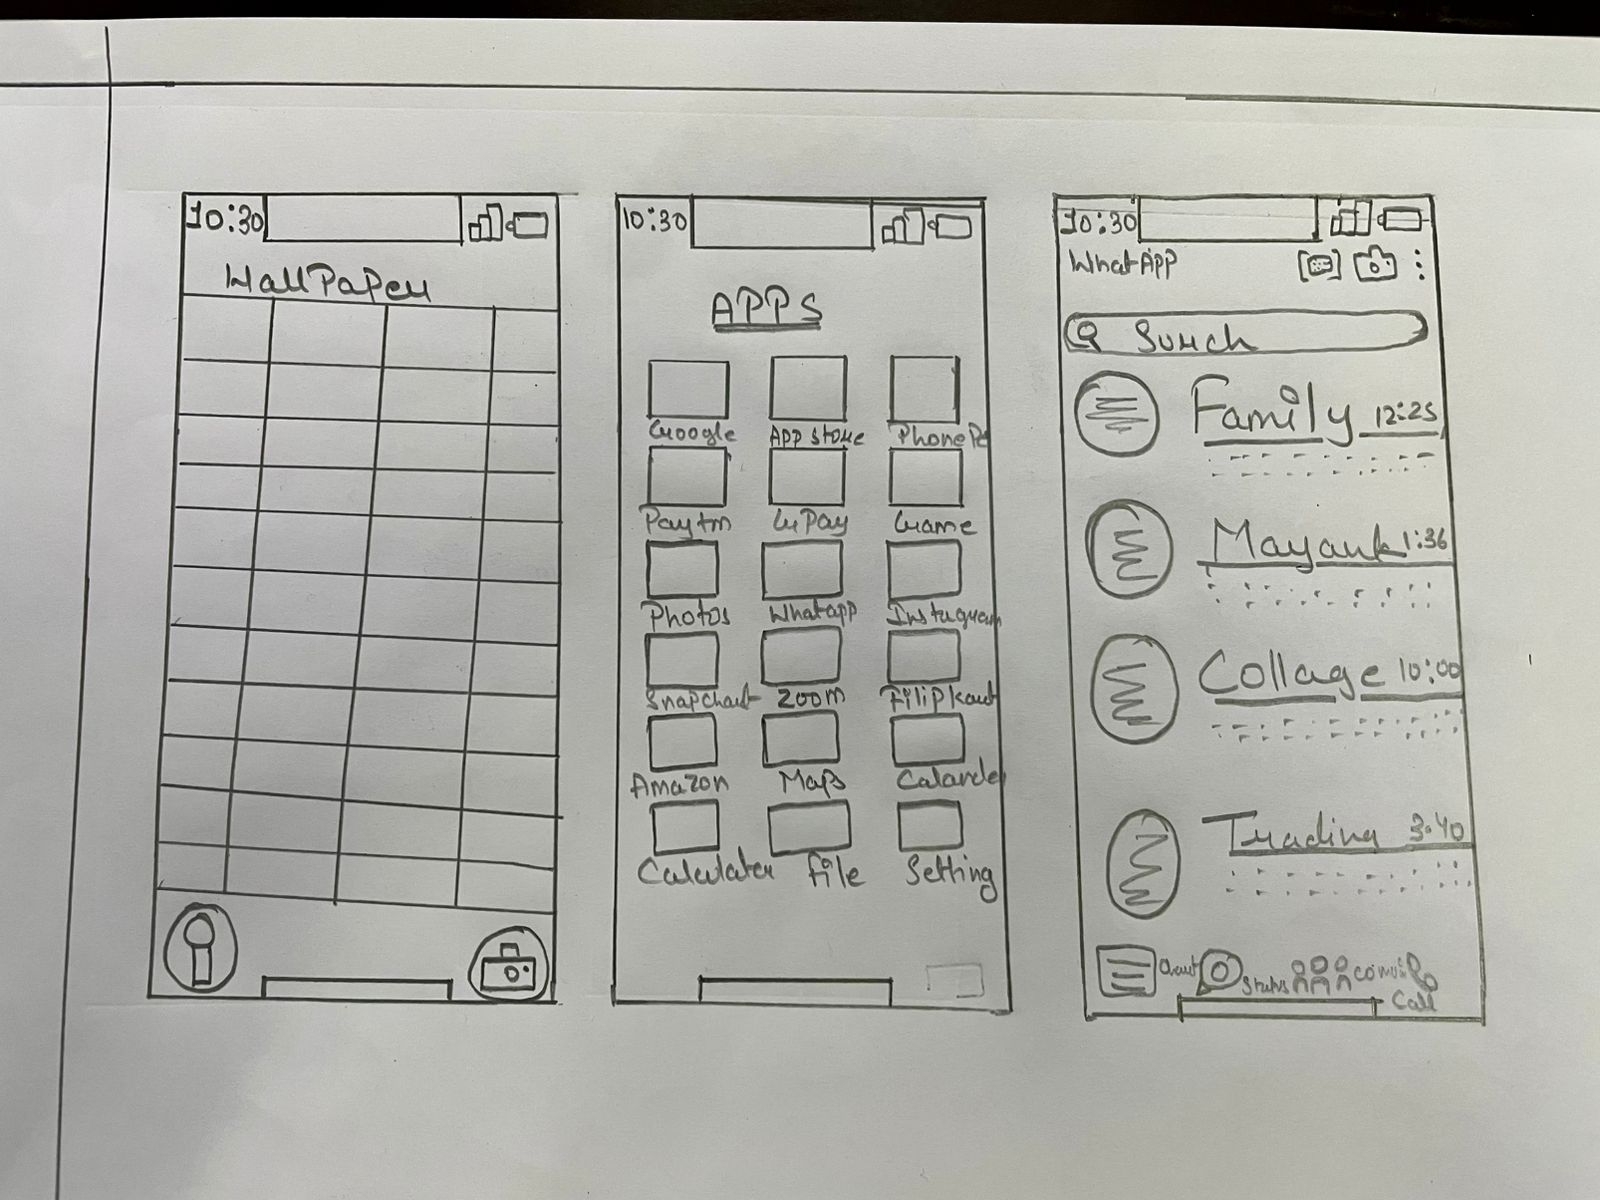 10:30
WallPaper
10:30
APPS
Google App store PhonePe
Paytm GPay Game
Photos Whatapp Instagram
Snapchat Zoom Filipkart
Amazon Maps Calander
Calculater file Setting
10:30
WhatApp
Search
Family 12:25
Mayank 1:36
Collage 10:00
Trading 3:40
Chat Status Call